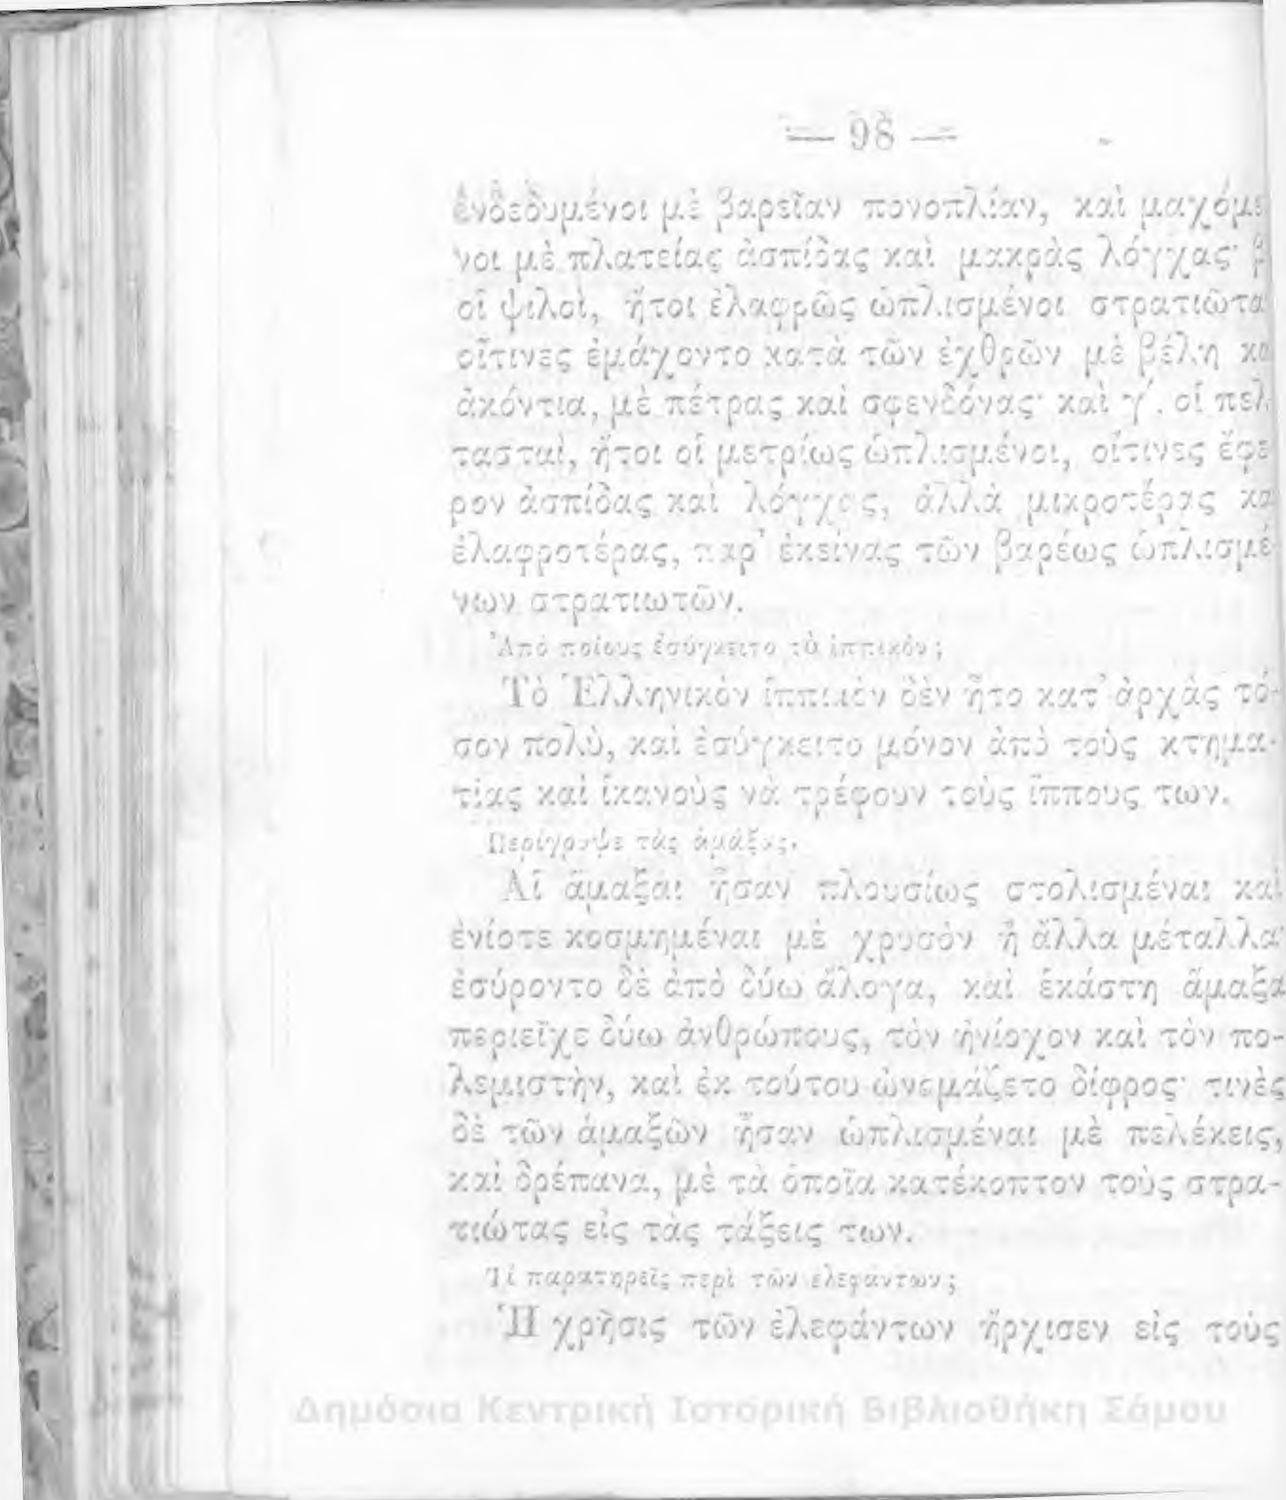 — 98 —
ἐνδεδυμένοι μὲ βαρεῖαν πονοπλίαν, καὶ μαχόμε
νοι μὲ πλατείας ἀσπίδας καὶ μακρὰς λόγχας· β
οἱ ψιλοὶ, ἤτοι ἐλαφρῶς ὡπλισμένοι στρατιῶτα
οἵτινες ἐμάχοντο κατὰ τῶν ἐχθρῶν μὲ βέλη κα
ἀκόντια, μὲ πέτρας καὶ σφενδόνας· καὶ γ΄. οἱ πελ
τασταὶ, ἤτοι οἱ μετρίως ὡπλισμένοι, οἵτινες ἔφε
ρον ἀσπίδας καὶ λόγχας, ἀλλὰ μικροτέρας κα
ἐλαφροτέρας, παρ' ἐκείνας τῶν βαρέως ὡπλισμέ-
νων στρατιωτῶν.
Ἀπὸ ποίους ἐσύγκειτο τὸ ἱππικόν;
Τὸ Ἑλληνικὸν ἱππικὸν δὲν ἦτο κατ' ἀρχὰς τό-
σον πολὺ, καὶ ἐσύγκειτο μόνον ἀπὸ τοὺς κτημα-
τίας καὶ ἱκανοὺς νὰ τρέφουν τοὺς ἵππους των.
Περίγραψε τὰς ἁμάξας.
Αἱ ἅμαξαι ἦσαν πλουσίως στολισμέναι καὶ
ἐνίοτε κοσμημέναι μὲ χρυσὸν ἢ ἄλλα μέταλλα·
ἐσύροντο δὲ ἀπὸ δύω ἄλογα, καὶ ἑκάστη ἅμαξα
περιεῖχε δύω ἀνθρώπους, τὸν ἡνίοχον καὶ τὸν πο-
λεμιστὴν, καὶ ἐκ τούτου ὠνεμάζετο δίφρος· τινὲς
δὲ τῶν ἁμαξῶν ἦσαν ὡπλισμέναι μὲ πελέκεις,
καὶ δρέπανα, μὲ τὰ ὁποῖα κατέκοπτον τοὺς στρα-
τιώτας εἰς τὰς τάξεις των.
Τί παρατηρεῖς περὶ τῶν ἐλεφάντων;
Ἡ χρῆσις τῶν ἐλεφάντων ἤρχισεν εἰς τοὺς
Δημόσια Κεντρική Ιστορική Βιβλιοθήκη Σάμου